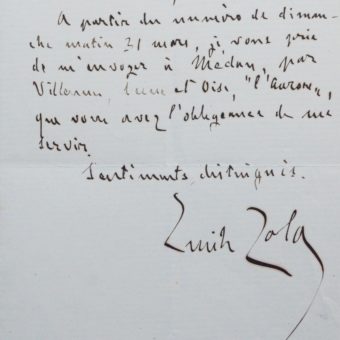 A partir du numéro de diman-
che matin 21 mars, je vous prie
de m'envoyer à Médan, par
Villennes, Seine et Oise, "l'Aurore",
que vous avez l'obligeance de me
servir.
Sentiments distingués.
Emile Zola